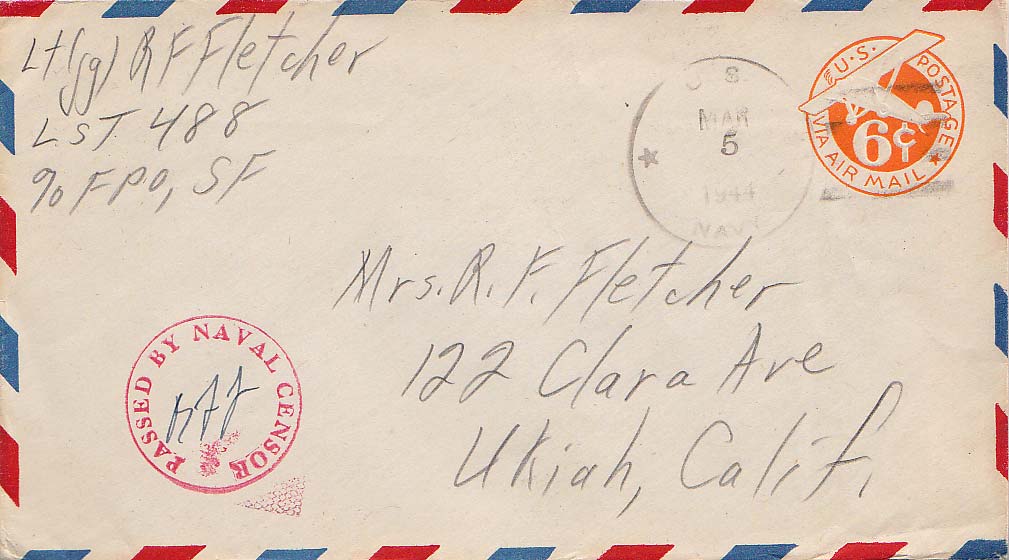 Lt(jg) R F Fletcher
LST 488
c/o FPO, SF
U.S. POSTAGE
6¢
VIA AIR MAIL
U S
MAR
5
1944
NAVY
Mrs. R. F. Fletcher
122 Clara Ave
Ukiah, Calif.
PASSED BY NAVAL CENSOR